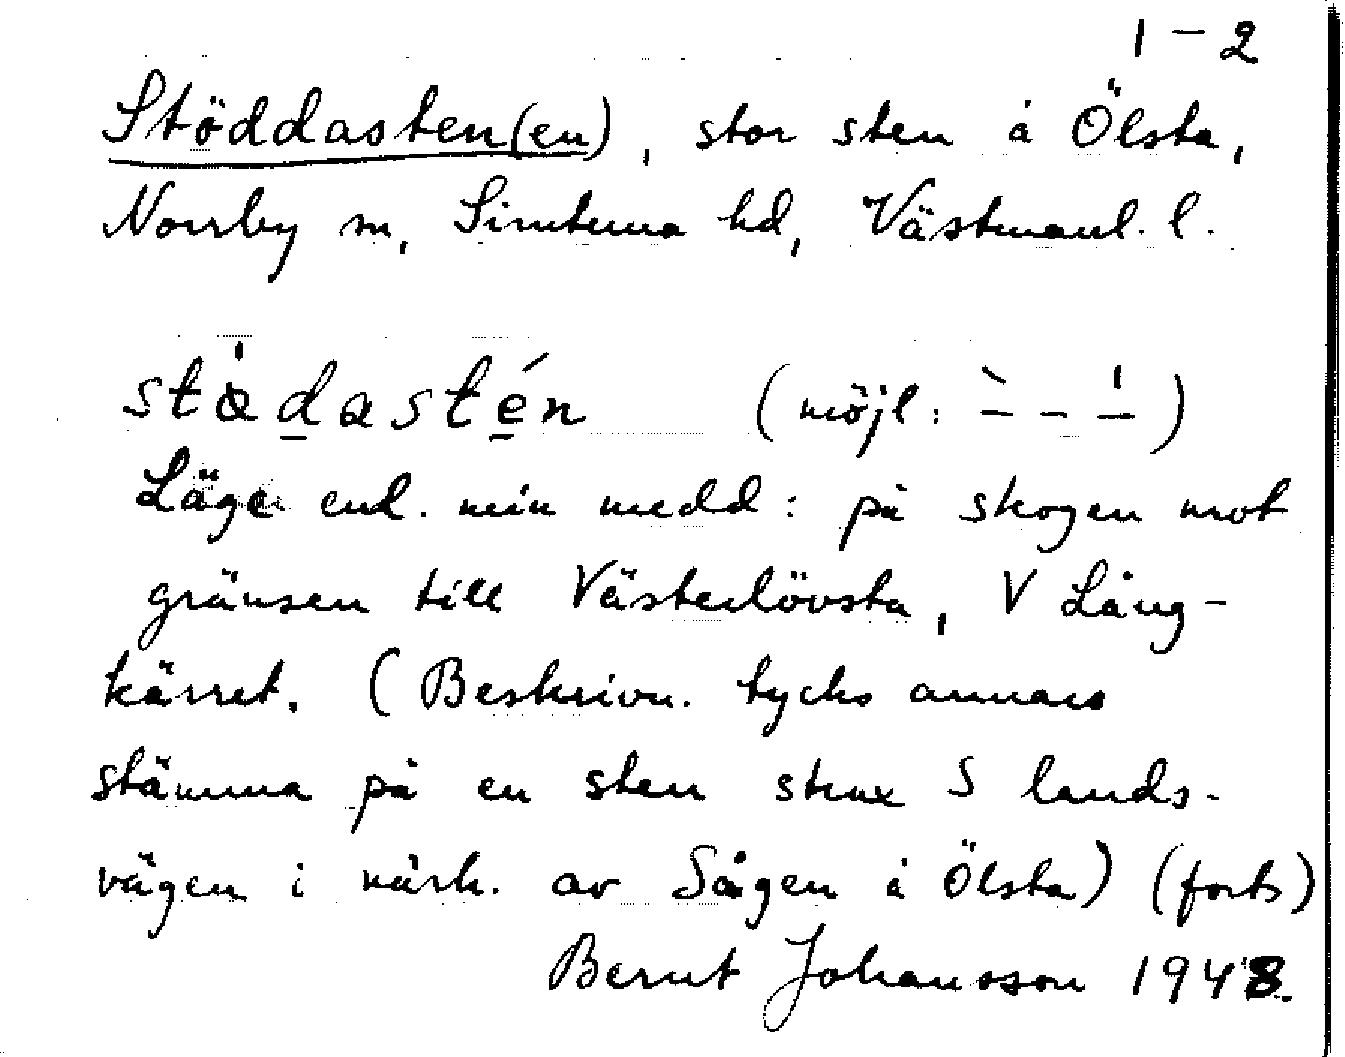 1-2
Stöddasten(en), stor sten å Ölsta,
Norrby sn, Simtuna hd, Västmanl. l.
stö̀dastén (möjl: `– – ´–)
Läge enl. min medd: på skogen mot
gränsen till Västerlövsta, V Lång-
kärret. (Beskrivn. tycks annars
stämma på en sten strax S lands-
vägen i närh. av Sågen å Ölsta) (forts)
Bernt Johansson 1948.